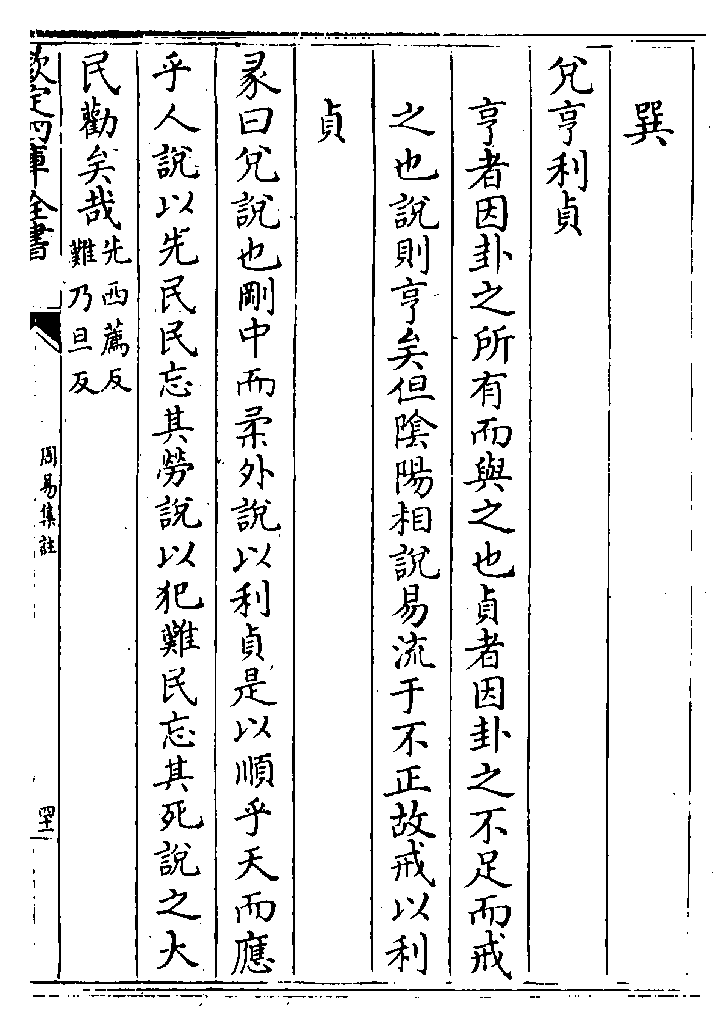 巽
兌亨利貞
亨者因卦之所有而與之也貞者因卦之不足而戒
之也說則亨矣但陰陽相說易流于不正故戒以利
貞
彖曰兌說也剛中而柔外說以利貞是以順乎天而應
乎人說以先民民忘其勞說以犯難民忘其死說之大
民勸矣哉先西薦反
難乃旦反
欽定四庫全書
周易集註